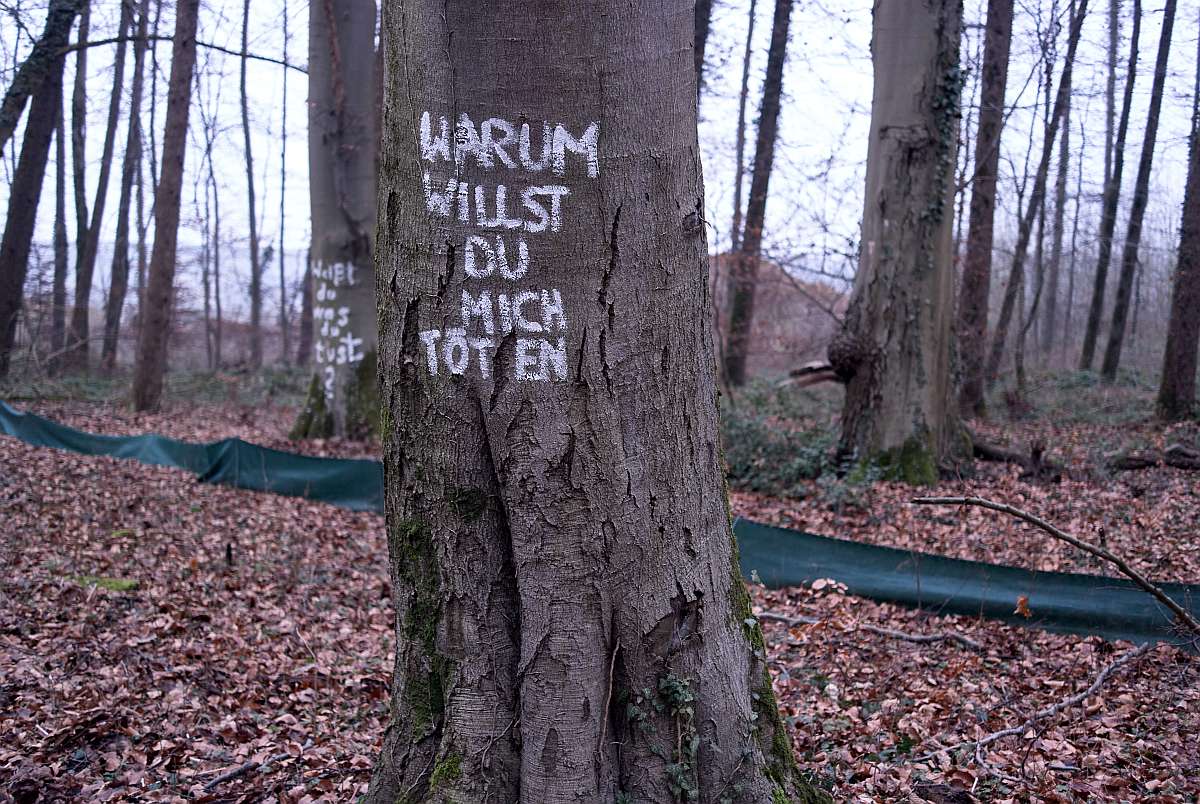 WARUM
WILLST
DU
MICH
TÖTEN
Weißt
du
was
du
tust
?